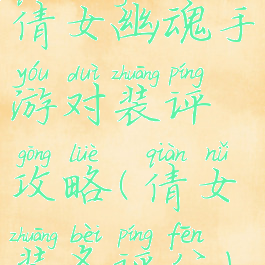 倩女幽魂手
yóu duì zhuāng píng
游对装评
gōng lüè qiàn nǚ
攻略(倩女
zhuāng bèi píng fēn
装备评分)